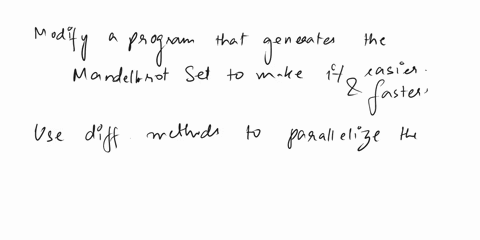 Modify a program that generates the
Mandelbrot Set to make it easier.
& faster.
Use diff. methods to parallelize the